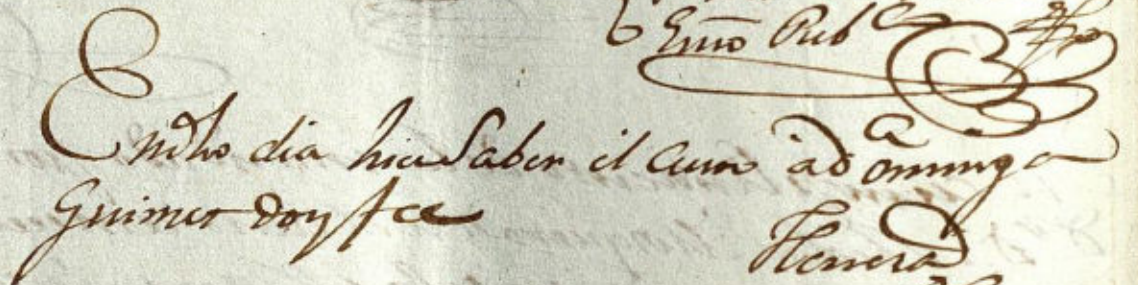 Essno Pubco
En dho dia hice Saber el auto a Da Dominga
Guimet doy fee
Herrera